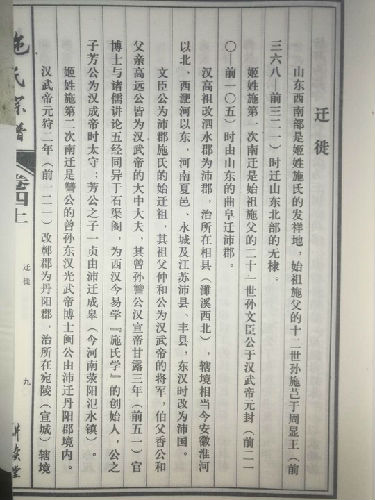 迁徙
山东西南部是姬姓施氏的发祥地，始祖施父的十二世孙施岂于周显王（前
三六八—前三二一）时迁山东北部的无棣。
姬姓施第一次南迁是始祖施父的二十一世孙文臣公于汉武帝元封（前一一
〇—前一〇五）时由山东的曲阜迁沛郡。
汉高祖改泗水郡为沛郡，治所在相县（濉溪西北），辖境相当今安徽淮河
以北，西淝河以东，河南夏邑、永城及江苏沛县、丰县，东汉时改为沛国。
文臣公为沛郡施氏的始迁祖，其祖父仲和公为汉武帝的将军，伯父香公和
父亲高远公皆为汉武帝的大中大夫，其曾孙讐公汉宣帝甘露三年（前五一）官
博士与诸儒讲论五经同异于石渠阁，为西汉今易学『施氏学』的创始人，公之
子芳公为汉成帝时太守；芳公之子一贞由沛迁成皋（今河南荥阳汜水镇）。
姬姓施第二次南迁是讐公的曾孙东汉光武帝博士闽公由沛迁丹阳郡境内。
汉武帝元狩二年（前一二一）改鄣郡为丹阳郡，治所在宛陵（宣城）辖境
施氏宗谱
卷四上
迁徙
九